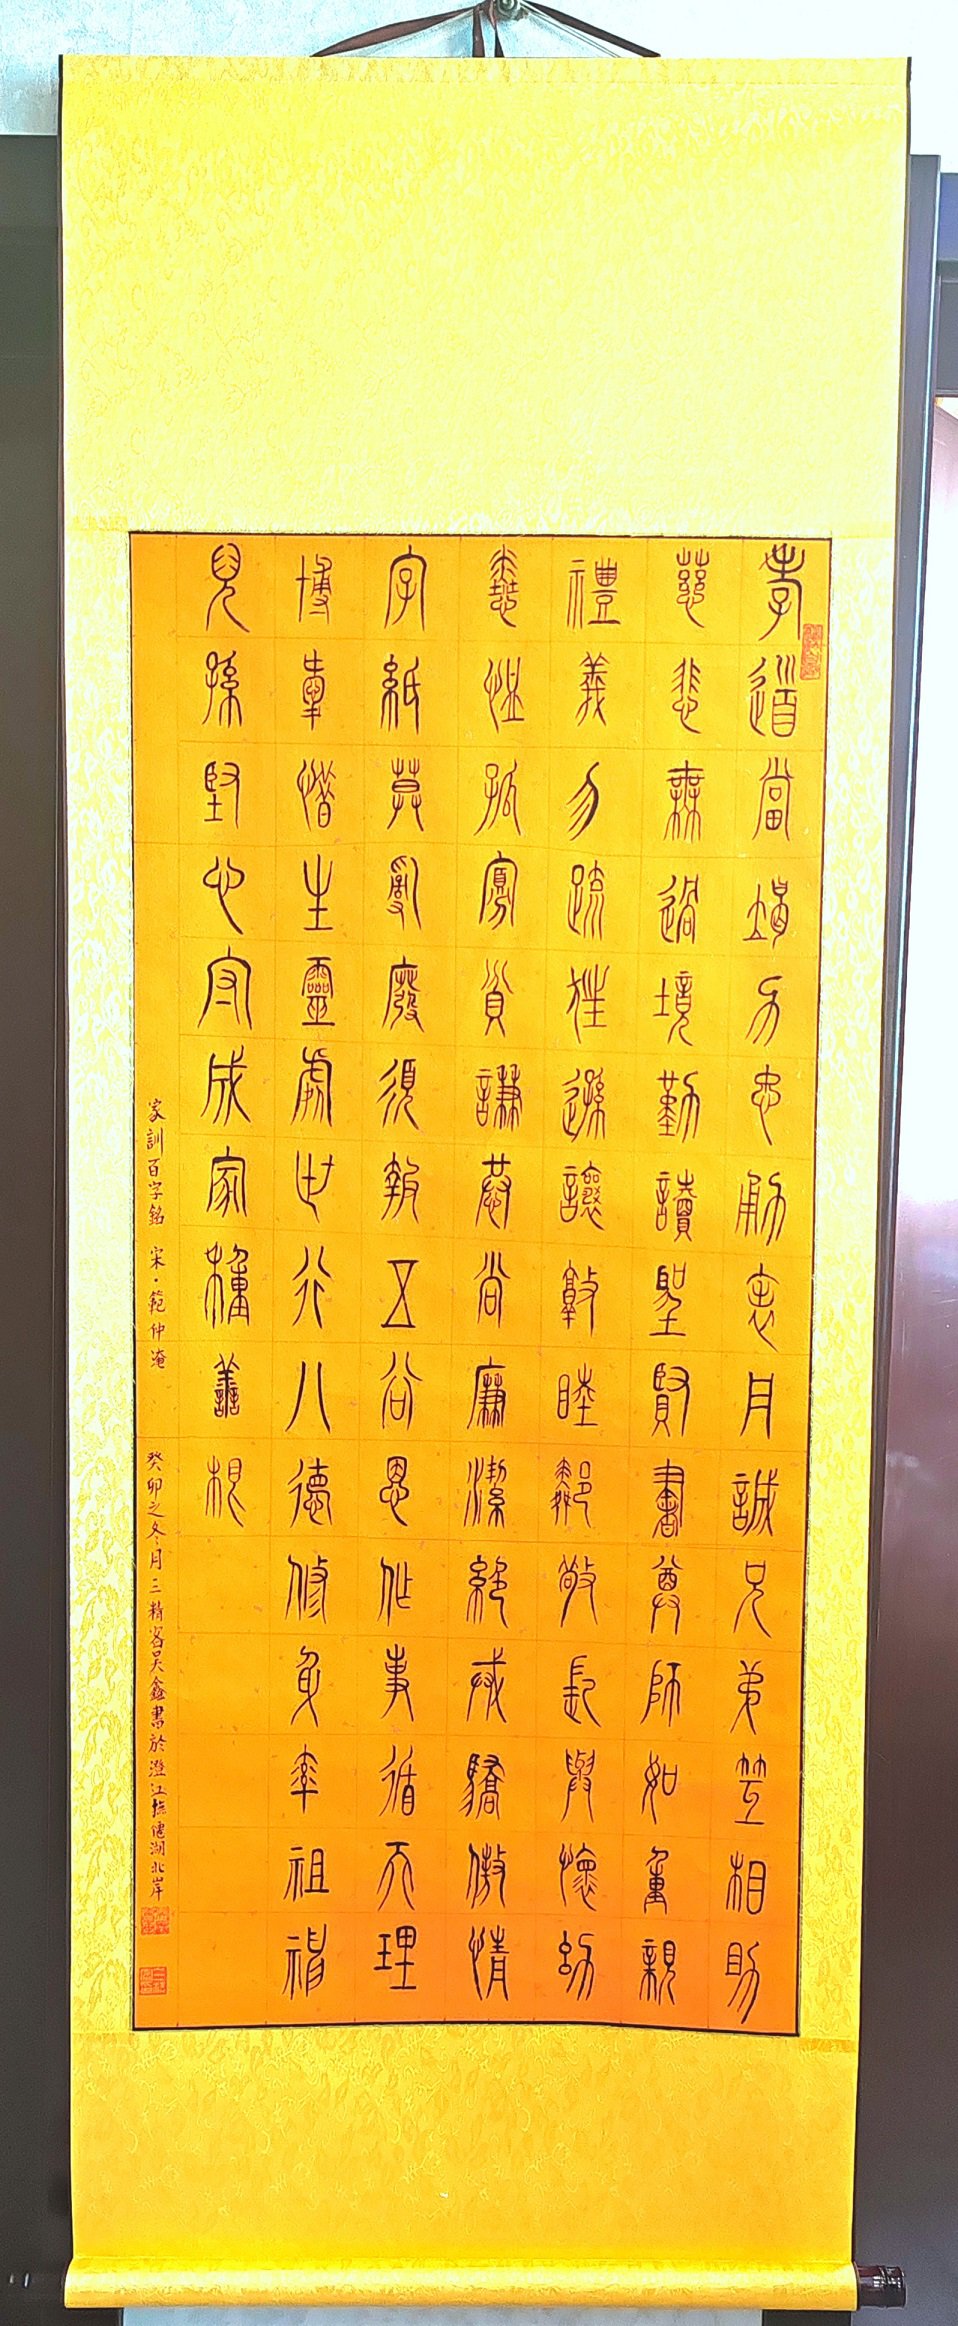 孝道當竭力忠勇表丹誠兄弟互相助
慈悲無過境勤讀聖賢書尊師如重親
禮義勿疏狂遜讓敦睦鄰敬長與懷幼
憐恤孤寡貧謙恭尚廉潔絕戒驕傲情
字紙莫亂廢須報五谷恩作事循天理
博愛惜生靈處世行八德修身率祖神
兒孫堅心守成家種善根
家訓百字銘 宋·範仲淹 癸卯之冬月三精客吴鑫書於澄江撫僊湖北岸